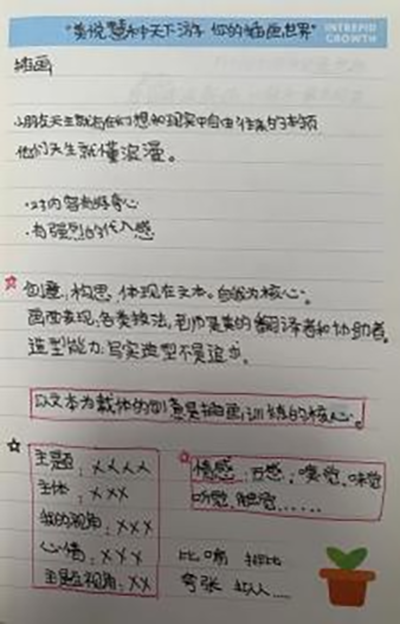 "美悦慧种天下游 你的插画世界"
INTREPID
GROWTH
插画
小朋友天生就有在幻想和现实中自由往来的本领
他们天生就懂浪漫。
·对内容有好奇心
·有强烈的代入感
创意,构思,体现在文本。自我为核心。
画面表现,各类技法,老师是真的翻译者和协助者。
造型能力,写实造型不是追求。
以文本为载体的创意是插画训练的核心。
主题:XXXX
主体:XXX
我的视角:XXX
心情:XXX
主题视角:XX
情感,五感,嗅觉,味觉
听觉,触觉.....
比喻 排比
夸张 拟人...